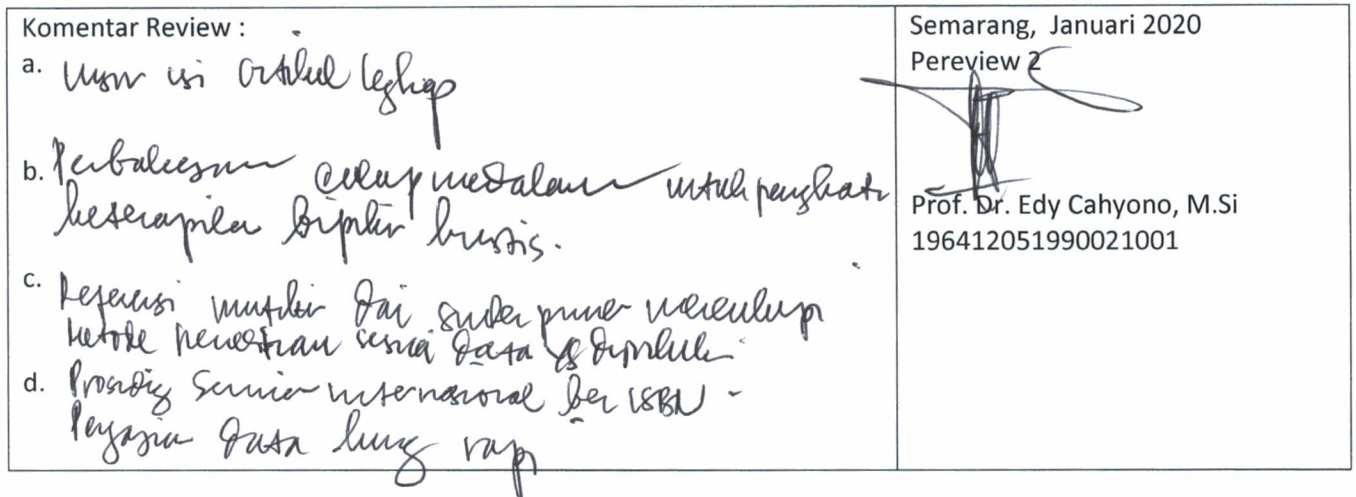 Komentar Review :
a. Unsur isi artikel lengkap
b. Pembahasan cukup mendalam untuk
keterampilan berpikir kritis.
c. Referensi mutakhir dari sumber primer
metode penelitian sesuai data yg diperoleh
d. Prosiding Seminar internasional ber ISBN -
Penyajian data kurang rapi
Semarang, Januari 2020
Pereview 2
Prof. Dr. Edy Cahyono, M.Si
196412051990021001